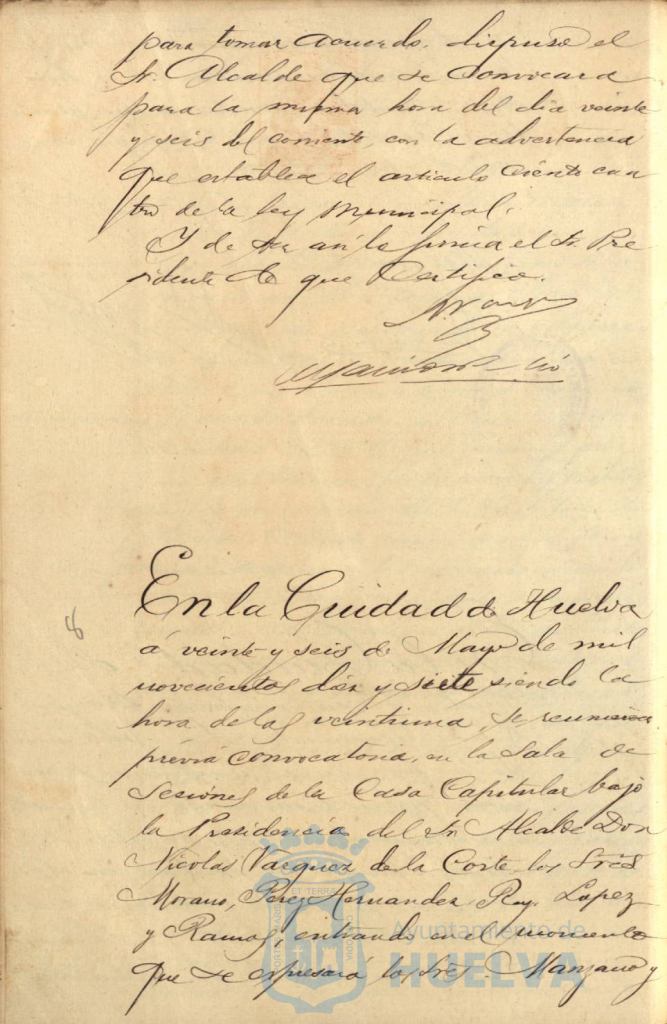 para tomar acuerdo, dispuso el
Sr. Alcalde que se convocara
para la misma hora del dia veinte
y seis del corriente, con la advertencia
que establece el articulo ciento cua
tro de la ley Municipal.
Y de ser asi lo firma el Sr. Pre
sidente de que Certifico.
8
En la Cuidad de Huelva
á veinte y seis de Mayo de mil
novecientos diez y siete siendo la
hora de las veintiuna, se reunieron
prévia convocatoria, en la Sala de
Sesiones de la Casa Capitular bajo
la Presidencia del Sr. Alcalde Don
Nicolas Vazquez de la Corte, los Srês
Morano, Perez Hernandez, Rey, Lopez
y Ramos, entrando en el momento
que se espresará los Srês. Manzano y
Ayuntamiento de
HUELVA